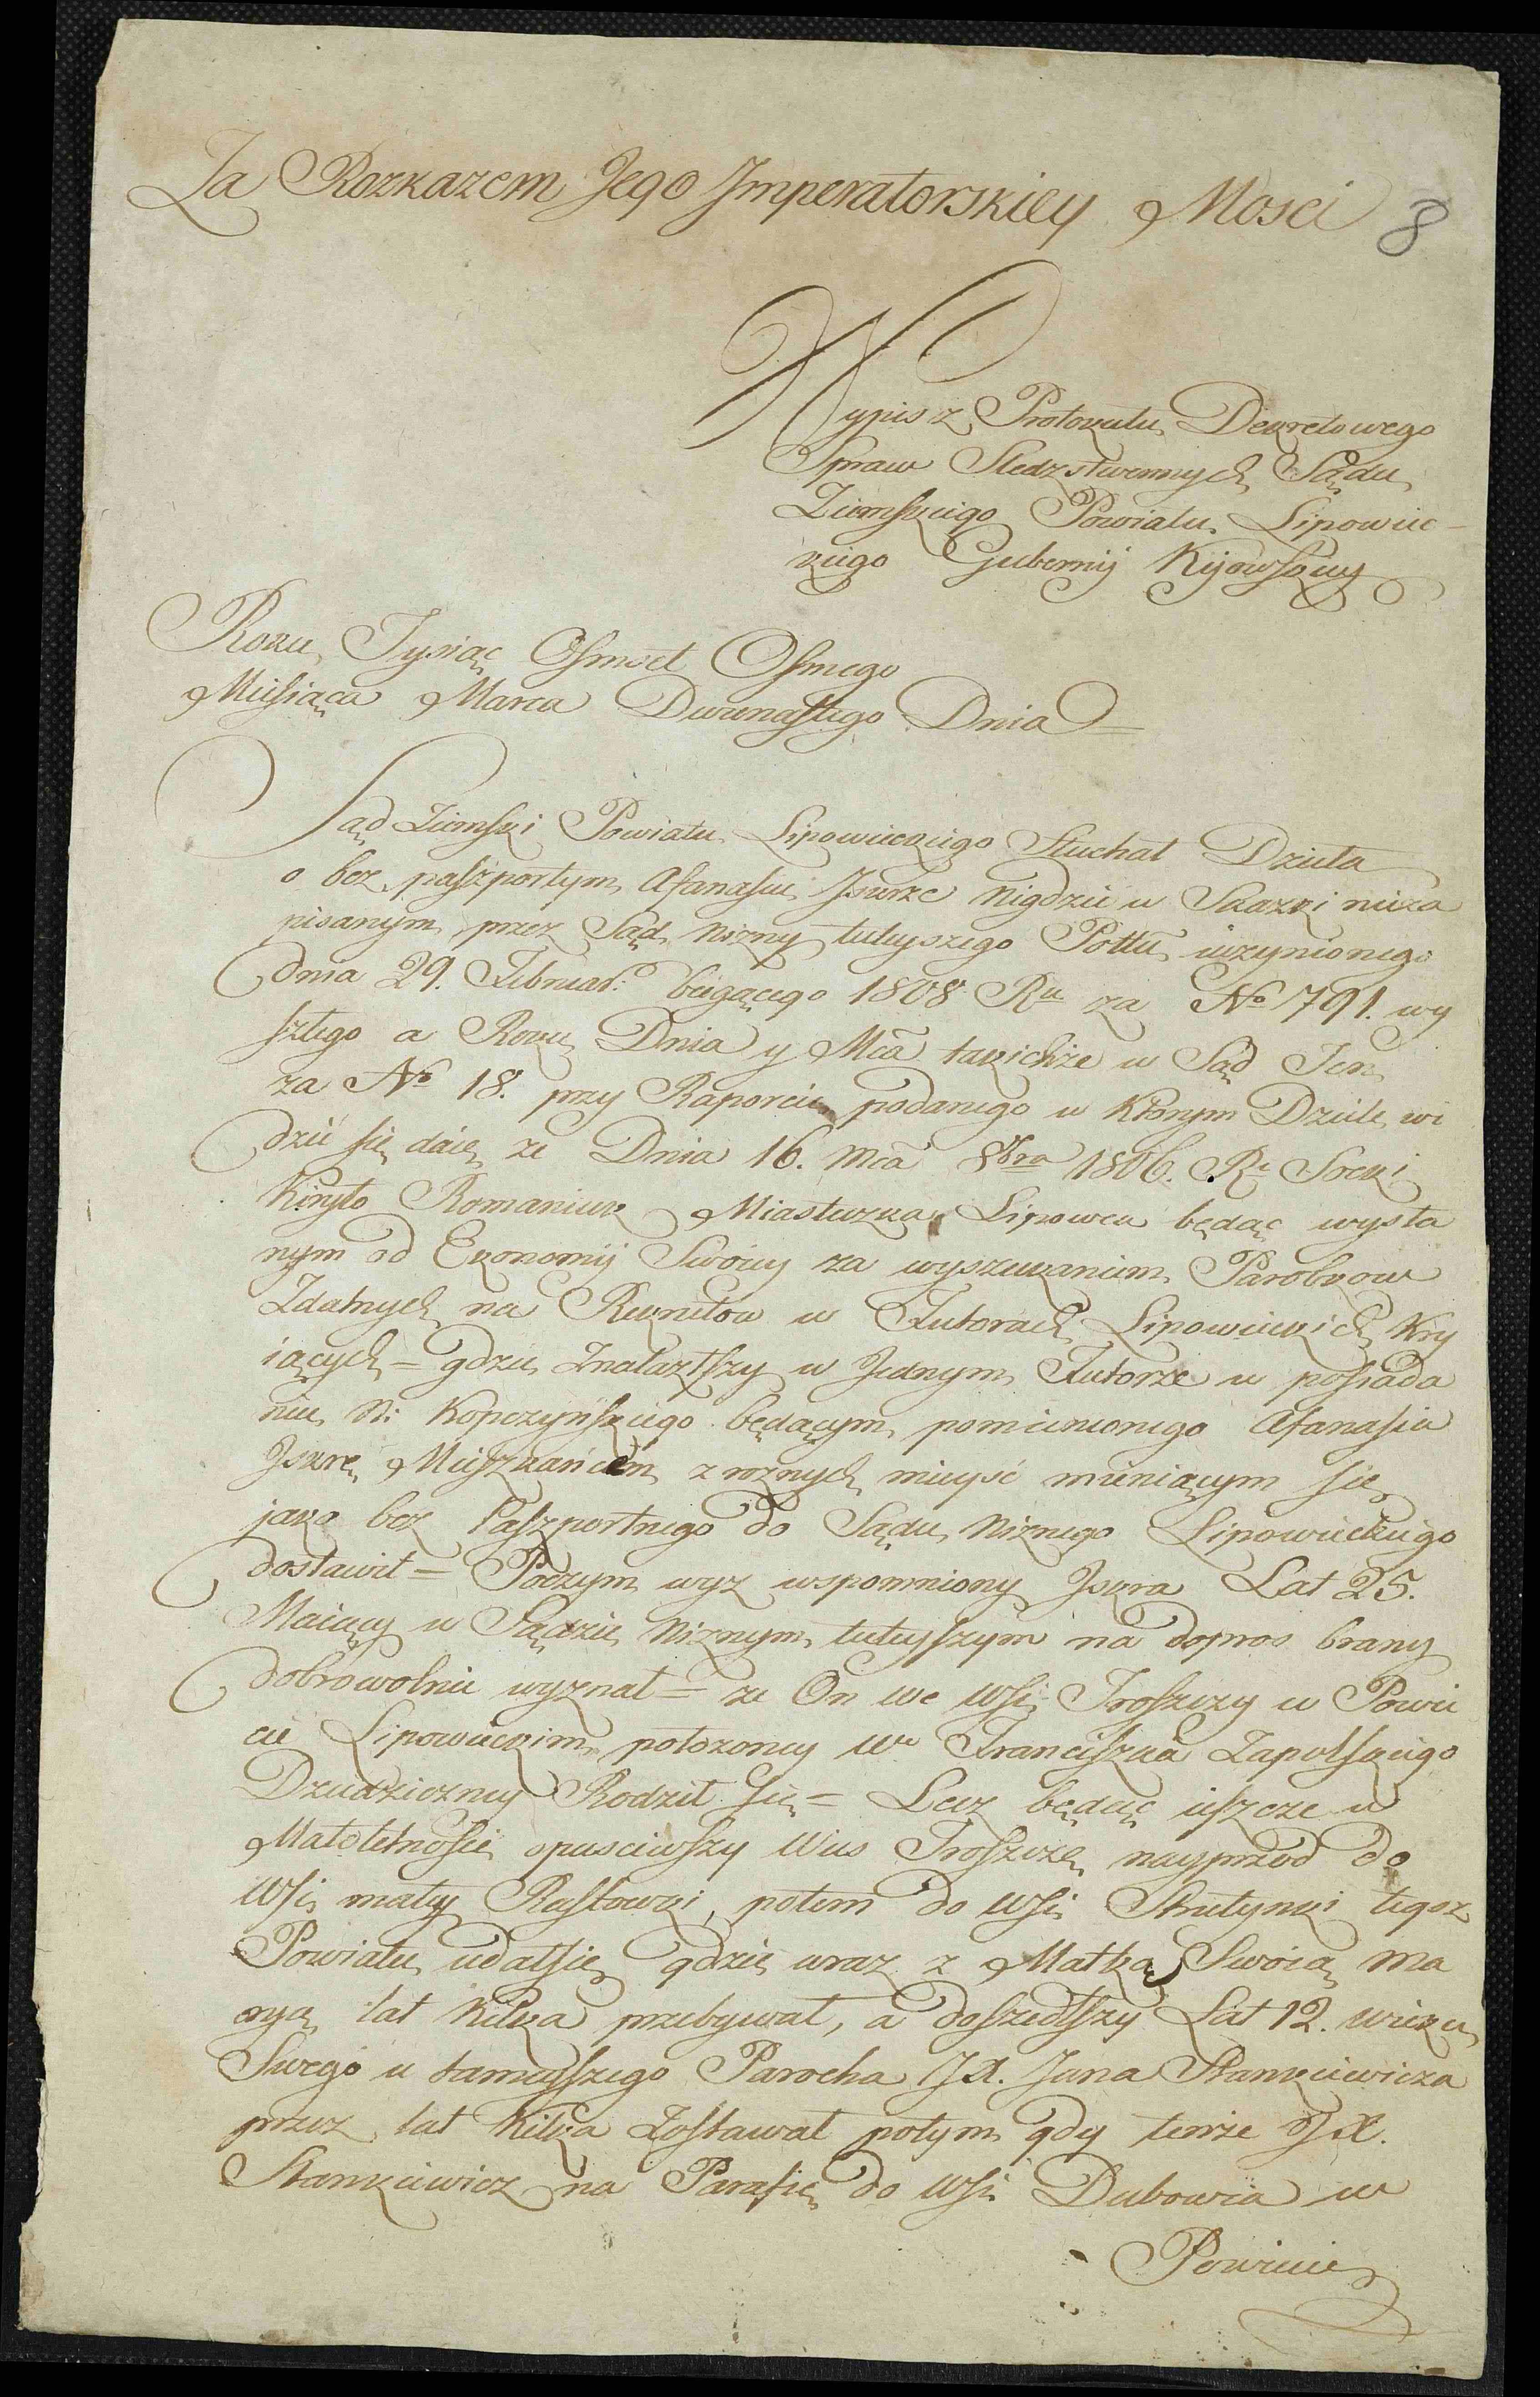 Za Rozkazem Jego Imperatorskiey Mosci 8
Wypis z Protokułu Dekretowego
Spraw Sledzstwennych Sądu
Ziemskiego Powiatu Lipowiec-
kiego Gubernij Kijowskiey
Roku Tysiąc Osmset Osmego
Miesiąca Marca Dwunastego Dnia =
Sąd Ziemski Powiatu Lipowieckiego Słuchał Dzieła
o bez paszportym Afanasiu Iskrze nigdzie w Skazki nieza
pisanym, przez Sąd Nizny tuteyszego Pottu uczynionego
dnia 29. Februar: bieigącego 1808 Ru za No 791. wy
szłego a Roku Dnia y Mca takichże w Sąd Ten
za No 18. przy Raporcie podanego w którym Dziele wi
dzieć się daie, ze Dnia 16. Mca 8bra 1806. Ru Socki
Kiryło Romaniuk Miasteczka Lipowca będąc wysła
nym od Ekonomij Swoiey za wyszukaniem Parobkow
Zdatnych na Rekrutow w Futorach Lipowieckich Kry
iących = gdzie Znalazłszy w Jednym Futorze w posiada
niu W: Kopczyńskiego będącym, pomienionego Afanasia
Iskrę Mieszkańcem z roznych mieysc mieniącym się
jako bez Paszportnego do Sądu Niznego Lipowieckiego
dostawił = Poczym wyz wspomniony Iskra Lat 25.
Maiący w Sądzie Niznym tuteyszym na dopros brany
dobrowolnie wyznał = ze On we Wsi Troszczy w Powie
cie Lipowieckim położoney We Franciszka Zapolskiego
Dziedziczney Rodził się = Lecz będąc ieszcze w
Małoletnosci opusciwszy Wies Troszczę nayprzod do
Wsi małey Rastowki, potem do Wsi Strutynki tegoz
Powiatu udałsię gdzie wraz z Matką Swoią Ma
ryą lat Kilka przebywał, a doszedłszy Lat 12. wieku
Swego u tameyszego Parocha JX. Jana Stankiewicza
przez lat Kilka Zostawał potym gdy tenże JX.
Stankiewicz na Parafię do Wsi Dubowia w
Powiecie